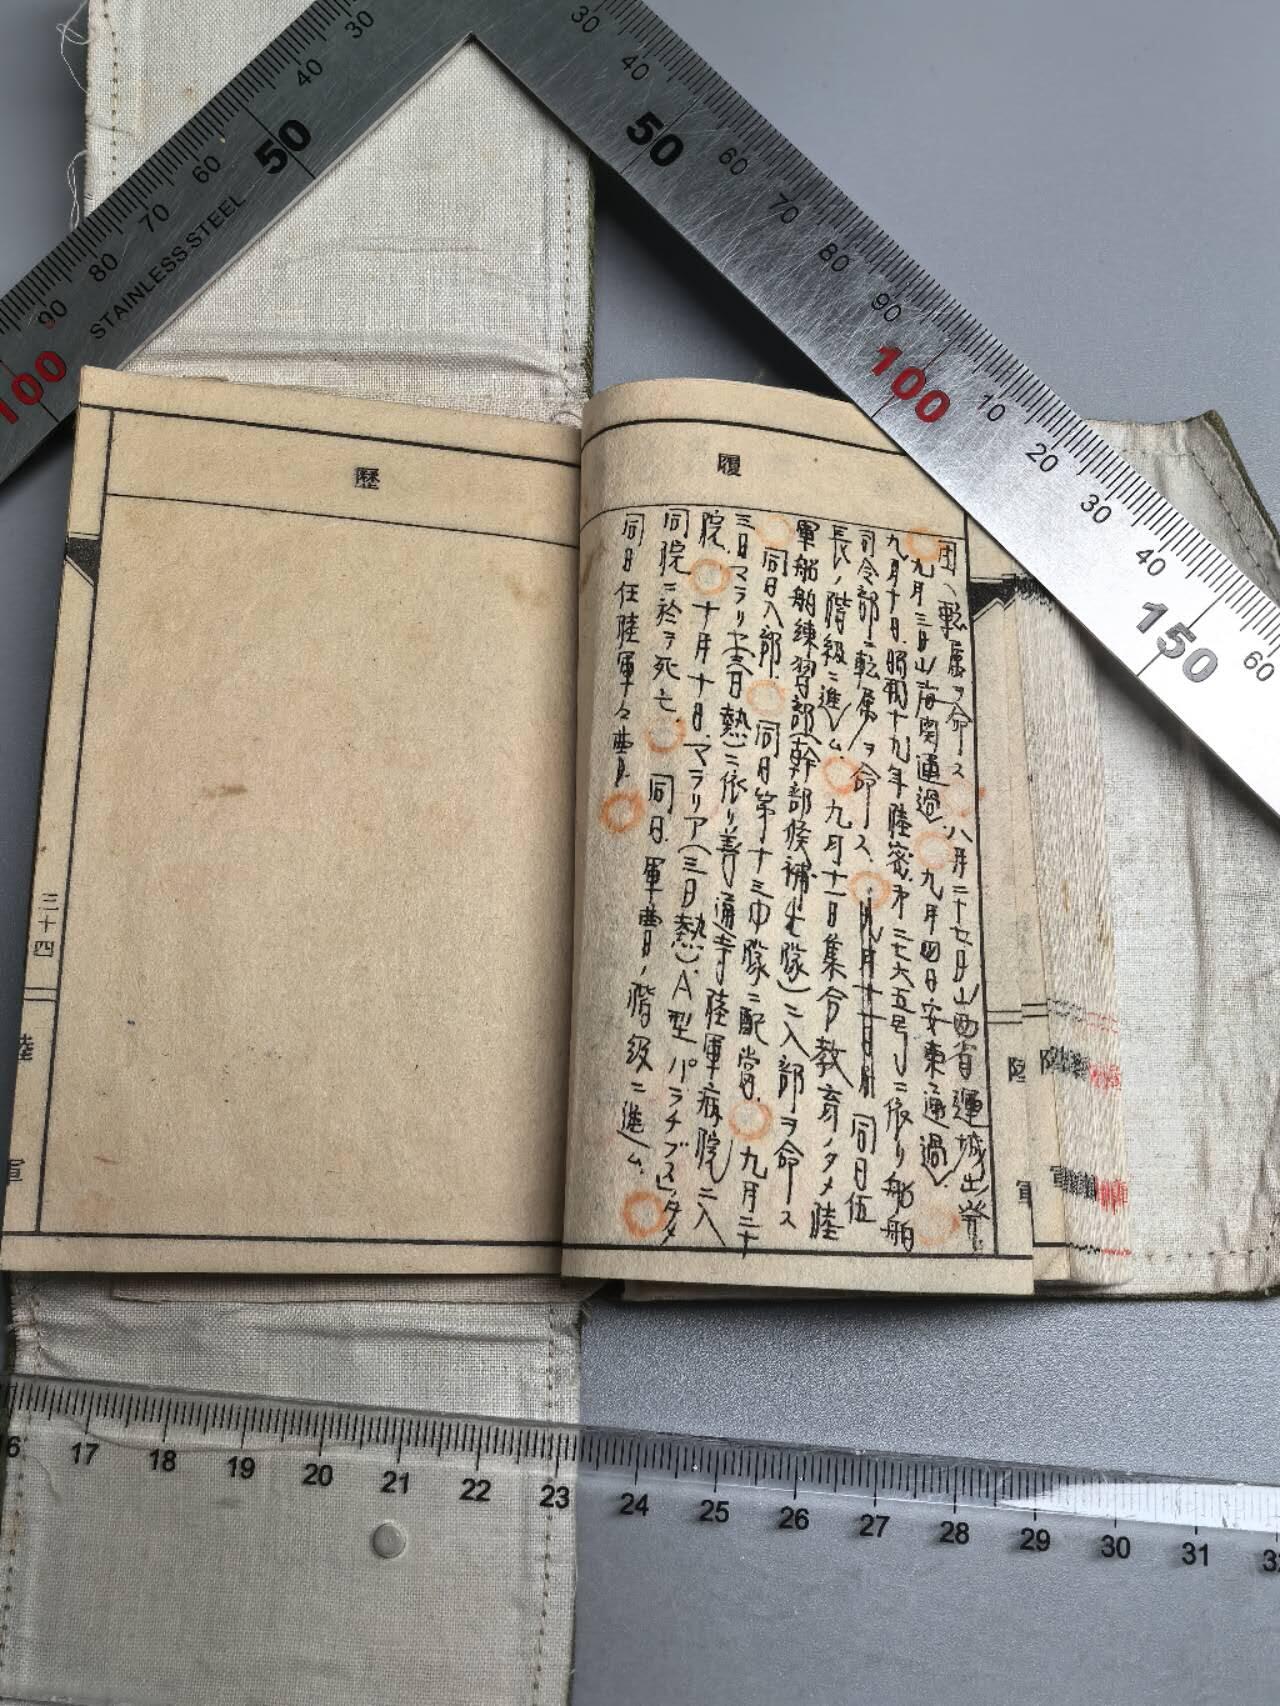 履
団ヘ転属ヲ命ス 八月二十七日山西省運城出発
九月三日山海関通過 九月四日安東通過
九月十日昭和十九年陸密才二七六五号ニ依リ船舶
司令部ニ転属ヲ命ス 九月十一日 同日伍
長ノ階級ニ進ム 九月十一日集合教育ノタメ陸
軍船舶練習部(幹部候補生隊)ニ入部ヲ命ス
同日入部 同日第十三中隊ニ配当 九月二十
三日マラリヤ(三日熱)ニ依リ善通寺陸軍病院ニ入
院 十月十日マラリア(三日熱)A型パラチブスノタメ
同院ニ於テ死亡 同日軍曹ノ階級ニ進ム
同日任陸軍々曹
歴
三十四
陸
軍
陸
軍
30
40
50
60
70
80
90
100
STAINLESS STEEL
30
40
50
60
70
80
90
100
10
20
30
40
150
60
17
18
19
20
21
22
23
24
25
26
27
28
29
30
31